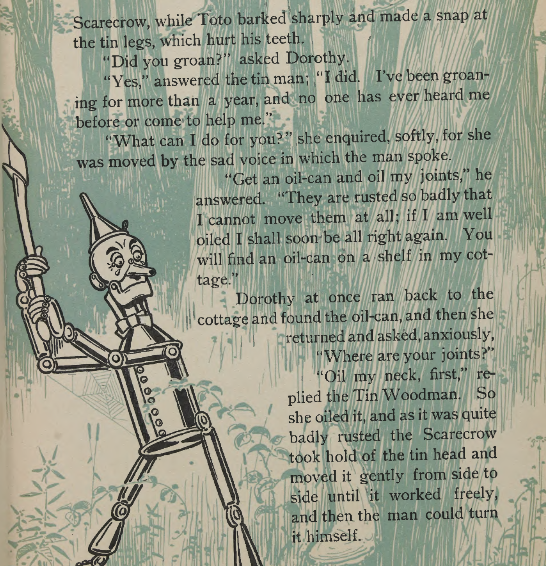 Scarecrow, while Toto barked sharply and made a snap at
the tin legs, which hurt his teeth.
"Did you groan?" asked Dorothy.
"Yes," answered the tin man; "I did. I've been groan-
ing for more than a year, and no one has ever heard me
before or come to help me."
"What can I do for you?" she enquired, softly, for she
was moved by the sad voice in which the man spoke.
"Get an oil-can and oil my joints," he
answered. "They are rusted so badly that
I cannot move them at all; if I am well
oiled I shall soon be all right again. You
will find an oil-can on a shelf in my cot-
tage."
Dorothy at once ran back to the
cottage and found the oil-can, and then she
returned and asked, anxiously,
"Where are your joints?"
"Oil my neck, first," re-
plied the Tin Woodman. So
she oiled it, and as it was quite
badly rusted the Scarecrow
took hold of the tin head and
moved it gently from side to
side until it worked freely,
and then the man could turn
it himself.